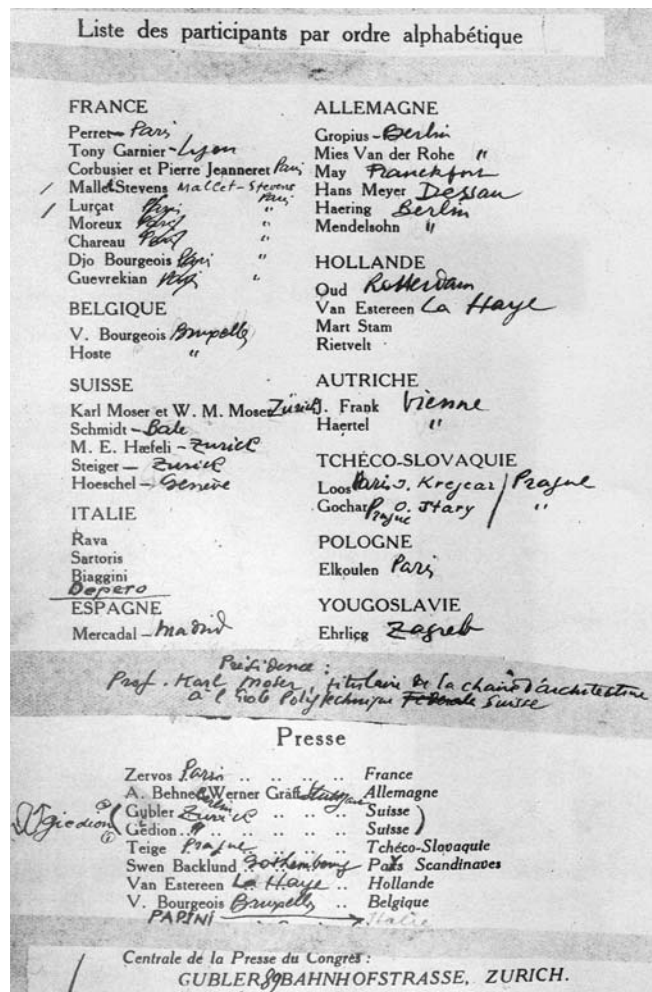 Liste des participants par ordre alphabétique
FRANCE
Perret - Paris
Tony Garnier - Lyon
Corbusier et Pierre Jeanneret Paris
Mallet Stevens Mallet-Stevens Paris
Lurçat Paris "
Moreux Paris "
Chareau Paris "
Djo Bourgeois Paris "
Guevrekian Paris "
BELGIQUE
V. Bourgeois Bruxelles
Hoste "
SUISSE
Karl Moser et W. M. Moser Zürich
Schmidt - Bale
M. E. Hæfeli - Zurich
Steiger - Zurich
Hoeschel - Genève
ITALIE
Rava
Sartoris
Biaggini
Depero
ESPAGNE
Mercadal - Madrid
ALLEMAGNE
Gropius - Berlin
Mies Van der Rohe "
May Franckfort
Hans Meyer Dessau
Haering Berlin
Mendelsohn "
HOLLANDE
Oud Rotterdam
Van Estereen La Haye
Mart Stam
Rietvelt
AUTRICHE
J. Frank Vienne
Haertel "
TCHÉCO-SLOVAQUIE
Loos Paris J. Krejcar / Prague
Gochar Prague O. Stary / "
POLOGNE
Elkoulen Paris
YOUGOSLAVIE
Ehrlicg Zagreb
Présidence :
Prof. Karl Moser, titulaire de la chaire d'architecture
à l'Ecole Polytechnique Federale Suisse
Presse
Zervos Paris .. .. .. .. France
A. Behne Berlin Werner Gräff Stuttgart Allemagne
Gubler Zurich .. .. .. Suisse
Dr Giedion ( Gedion .. " .. .. .. Suisse )
Teige Prague .. .. .. Tchéco-Slovaquie
Swen Backlund Gothembourg Pays Scandinaves
Van Estereen La Haye .. Hollande
V. Bourgeois Bruxelles .. Belgique
PAPINI Italie
Centrale de la Presse du Congrès :
GUBLER 89 BAHNHOFSTRASSE, ZURICH.